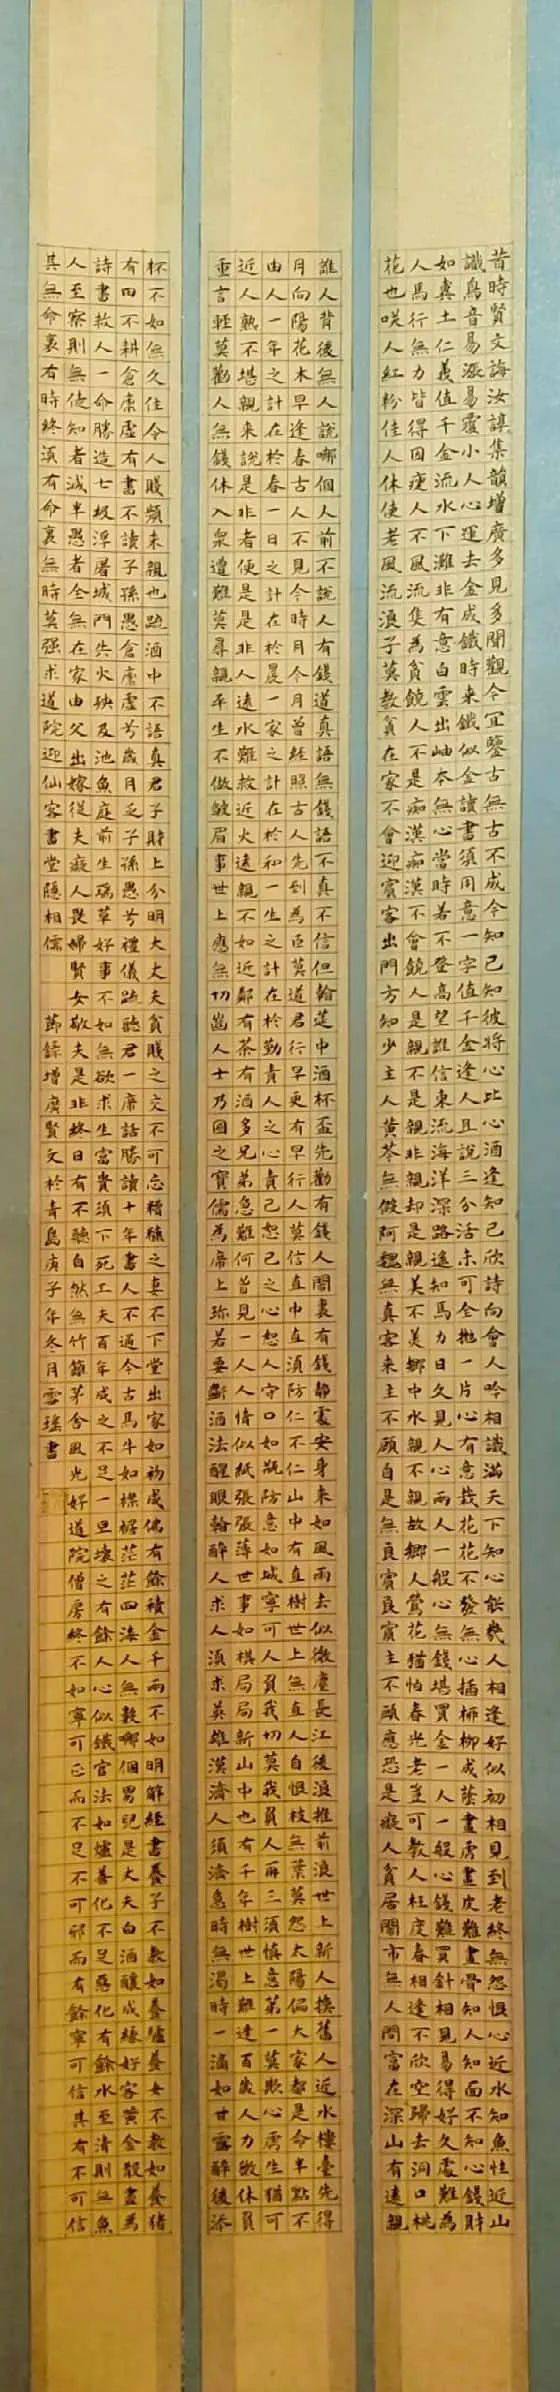 昔時賢文誨汝諄集韻增廣多見多聞觀今宜鑒古無古不成今知己知彼將心比心酒逢知己飲詩向會人吟相識滿天下知心能幾人相逢好似初相見到老終無怨恨心近水知魚性近山
識鳥音易漲易覆小人心運去金成鐵時來鐵似金讀書須用意一字值千金逢人且說三分話未可全拋一片心有意栽花花不發無心插柳柳成蔭畫虎畫皮難畫骨知人知面不知心錢財
如糞土仁義值千金流水下灘非有意白雲出岫本無心當時若不登高望誰信東流海洋深路遙知馬力日久見人心兩人一般心無錢堪買金一人一般心錢難買針相見易得好久處難為
人馬行無力皆得因瘦人不風流集為貧饒人不是痴漢痴漢不會饒人是親不是親非親却是親美不美鄉中水親不親故鄉人鶯花猶怕春光老豈可教人枉度春相逢不飲空歸去洞口桃
花也咲人紅粉佳人休使老風流浪子莫教貧在家不會迎賓客出門方知少主人黃芩無假阿魏無真客來主不顧自是無良賓良賓主不顧應恐是癡人貧居鬧市無人問富在深山有遠親
誰人背後無人說哪個人前不說人有錢道真語無錢語不真不信但翰筵中酒杯盃先勸有錢人鬧裏有錢靜處安身來如風雨去似微塵長江後浪推前浪世上新人換舊人近水樓臺先得
月向陽花木早逢春古人不見今時月今月曾經照古人先到為臣莫道君行早更有早行人莫信直中直須防仁不仁山中有直樹世上無直人自恨枝無葉莫怨太陽偏大家都是命半點不
由人一年之計在於春一日之計在於晨一家之計在於和一生之計在於勤責人之心責己恕己之心恕人守口如瓶防意如城寧可人負我切莫我負人再三須慎意第一莫欺心虎生猶可
近人熟不堪親來說是非者便是是非人遠水難救近火遠親不如近鄰有茶有酒多兄弟急難何曾見一人人情似紙張張薄世事如棋局局新山中也有千年樹世上難逢百歲人力微休負
重言輕莫勸人無錢休入眾遭難莫尋親平生不做皺眉事世上應無切齒人士乃國之寶儒為席上珍若要斷酒法醒眼翰醉人求人須求英雄漢濟人須濟急時無渴時一滴如甘露醉後添
杯不如無久住令人賤頻來親也疏酒中不語真君子財上分明大丈夫貧賤之交不可忘糟糠之妻不下堂出家如初成佛有餘積金千兩不如明解經書養子不教如養驢養女不教如養豬
有田不耕倉廩虛有書不讀子孫愚倉廩虛兮歲月乏子孫愚兮禮儀疏聽君一席話勝讀十年書人不通今古馬牛如襟裾茫茫四海人無數哪個男兒是丈夫白酒釀成緣好客黃金散盡為
詩書救人一命勝造七級浮屠城門失火殃及池魚庭前生瑞草好事不如無欲求生富貴須下死工夫百年成之不足一旦壞之有餘人心似鐵官法如爐善化不足惡化有餘水至清則無魚
人至察則無徒知者減半愚者全無在家由父出嫁從夫癡人畏婦賢女敬夫是非終日有不聽自然無竹籬茅舍風光好道院僧房終不如寧可正而不足不可邪而有餘寧可信其有不可信
其無命裏有時終須有命裏無時莫强求道院迎仙客書堂隱相儒 節錄增廣賢文於青島庚子年冬月雪瑤書